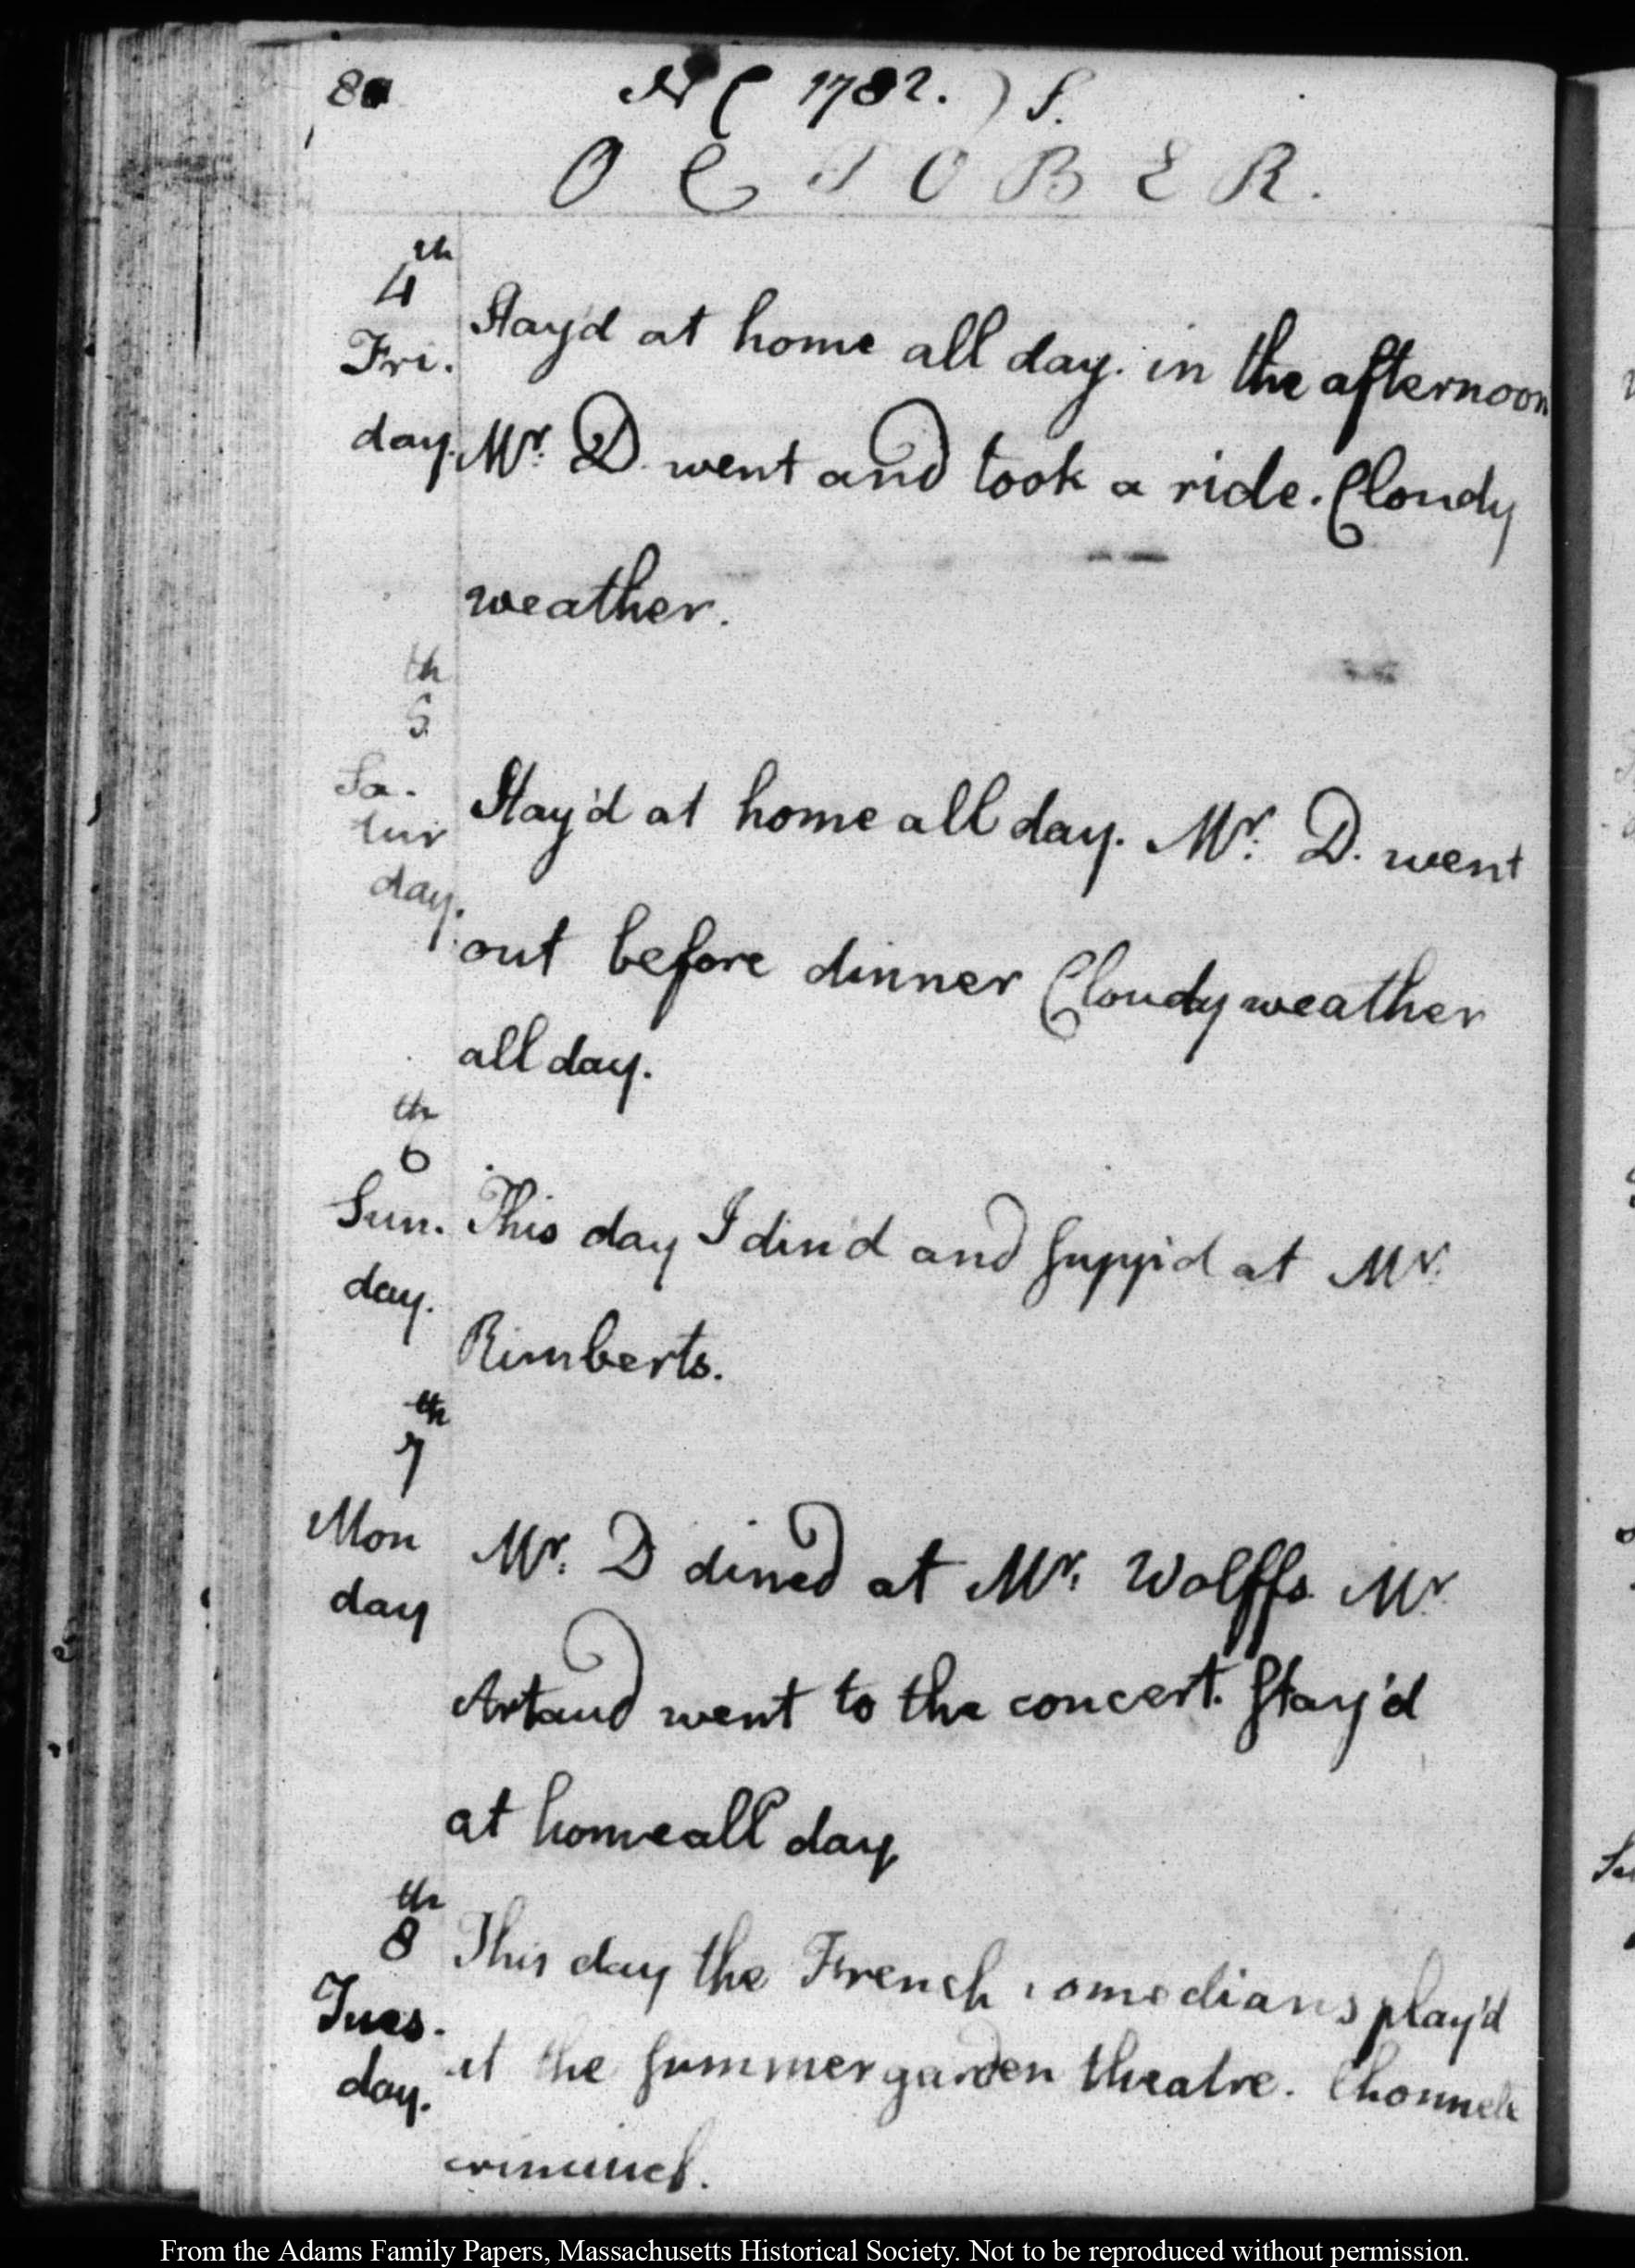 80 N ( 1782. ) S.
OCTOBER.
4th
Fri.
day.
Stay'd at home all day. in the afternoon
Mr. D. went and took a ride. Cloudy
weather.
th
5
Sa.
tur
day.
Stay'd at home all day. Mr. D. went
out before dinner Cloudy weather
all day.
th
6
Sun.
day.
This day I din'd and supp'd at Mr.
Rimberts.
th
7
Mon
day
Mr. D dined at Mr. Wolffs. Mr.
Artaud went to the concert. Stay'd
at home all day
th
8
Tues.
day.
This day the French comedians play'd
at the summer garden theatre. l'honnete
criminel.
From the Adams Family Papers, Massachusetts Historical Society. Not to be reproduced without permission.